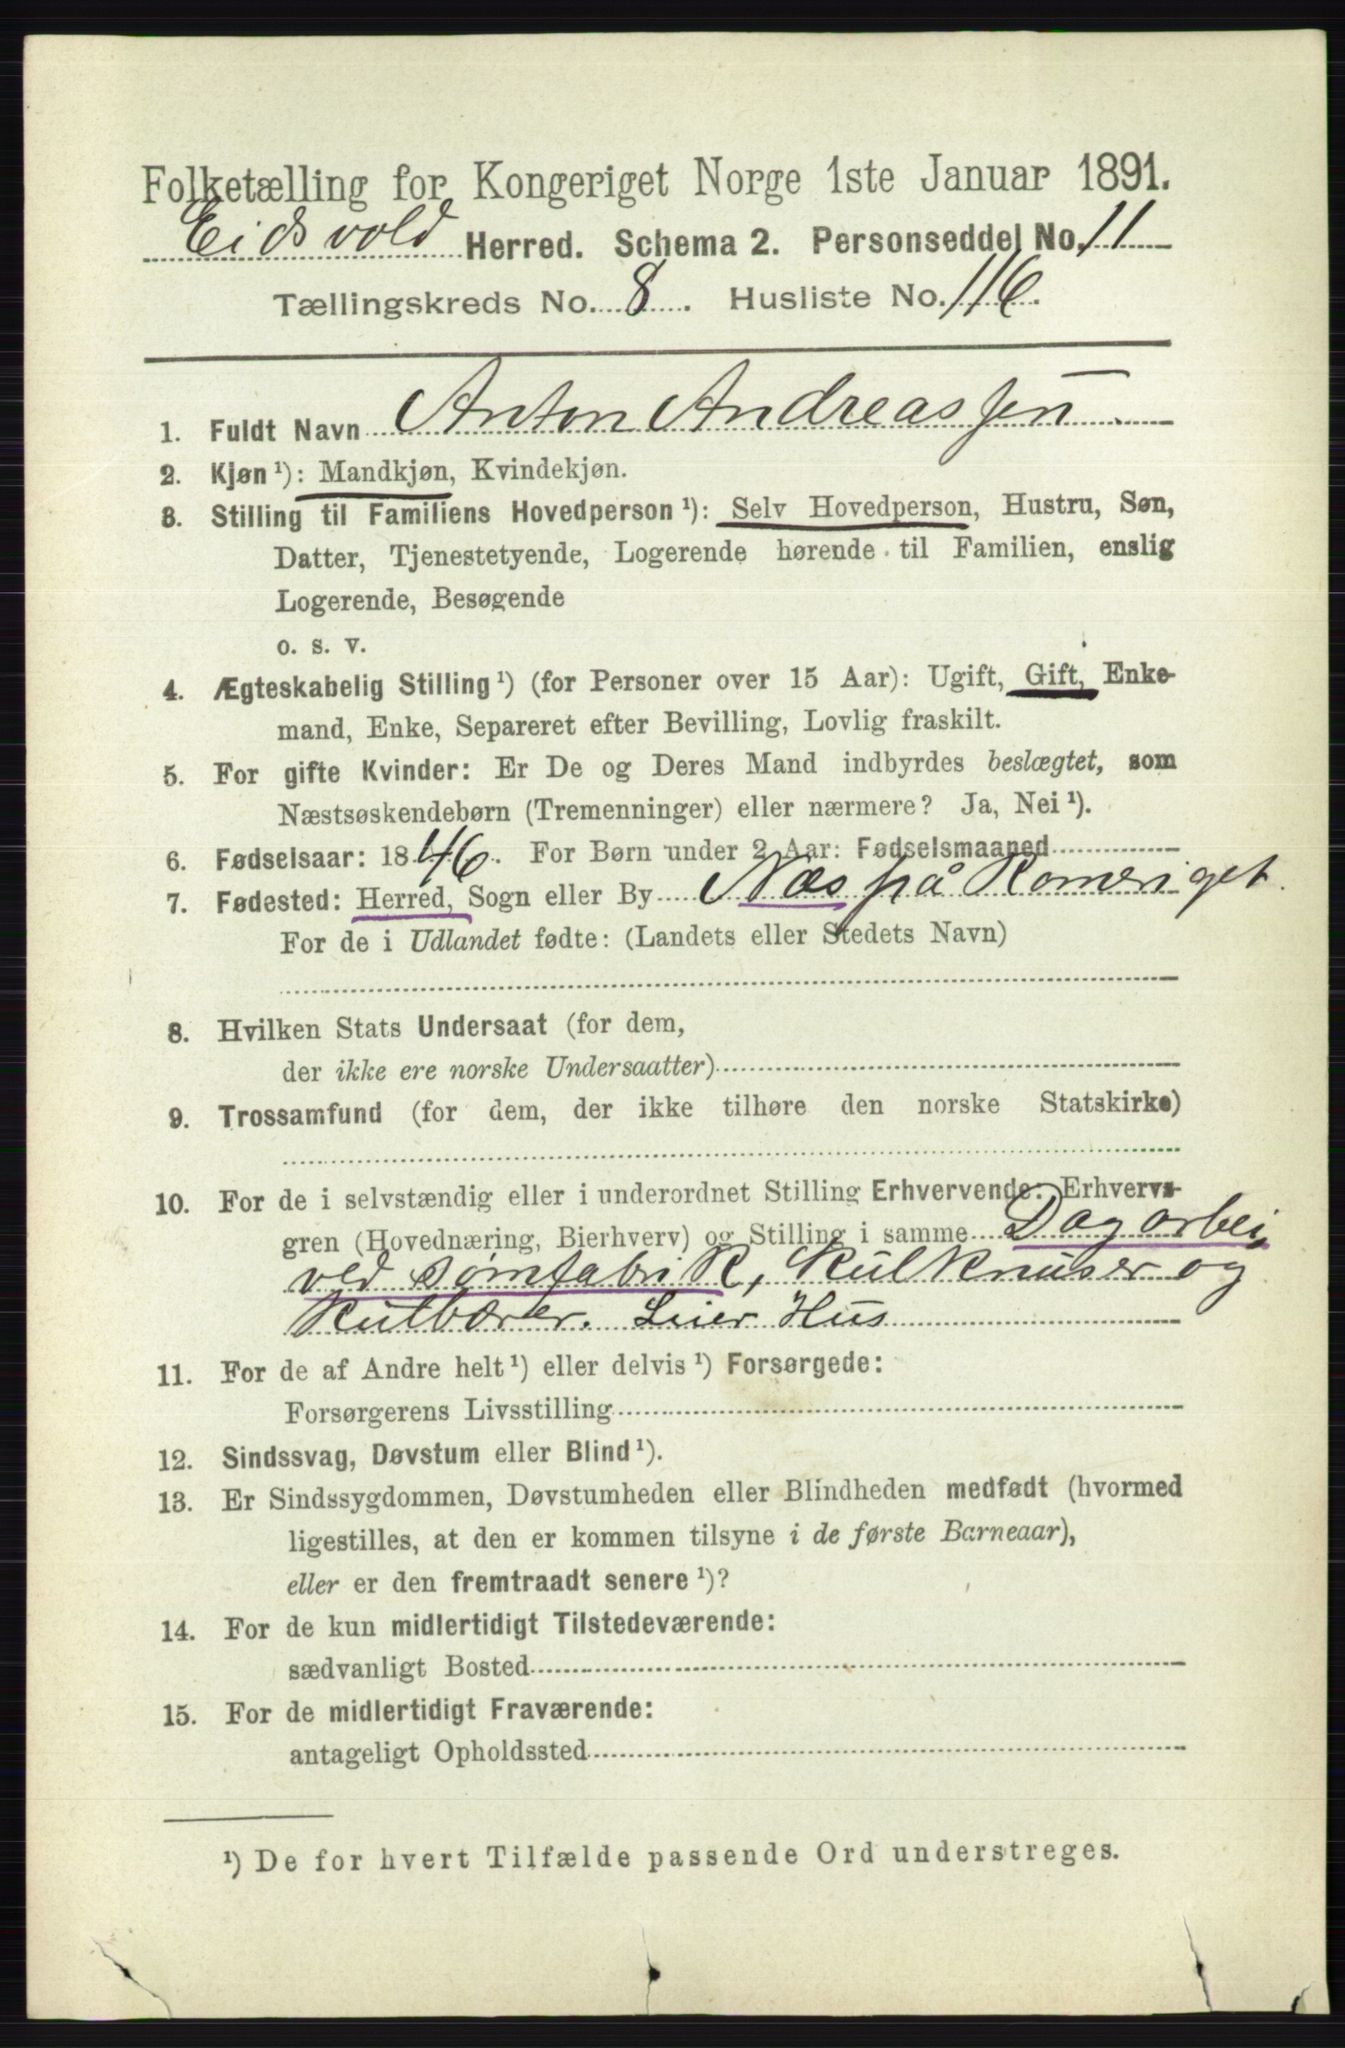 Folketælling for Kongeriget Norge 1ste Januar 1891.
Eidsvold Herred. Schema 2. Personseddel No. 11
Tællingskreds No. 8. Husliste No. 116.
1. Fuldt Navn Anton Andreassen
2. Kjøn ¹): Mandkjøn, Kvindekjøn.
3. Stilling til Familiens Hovedperson ¹): Selv Hovedperson, Hustru, Søn,
Datter, Tjenestetyende, Logerende hørende til Familien, enslig
Logerende, Besøgende
o. s. v.
4. Ægteskabelig Stilling ¹) (for Personer over 15 Aar): Ugift, Gift, Enke-
mand, Enke, Separeret efter Bevilling, Lovlig fraskilt.
5. For gifte Kvinder: Er De og Deres Mand indbyrdes beslægtet, som
Næstsøskendebørn (Tremenninger) eller nærmere? Ja, Nei ¹).
6. Fødselsaar: 1846. For Børn under 2 Aar: Fødselsmaaned
7. Fødested: Herred, Sogn eller By Næs på Romeriget.
For de i Udlandet fødte: (Landets eller Stedets Navn)
8. Hvilken Stats Undersaat (for dem,
der ikke ere norske Undersaatter)
9. Trossamfund (for dem, der ikke tilhøre den norske Statskirke)
10. For de i selvstændig eller i underordnet Stilling Erhvervende: Erhvervs-
gren (Hovednæring, Bierhverv) og Stilling i samme Dagarbei,
ved sømfabrik, Kulknuser og
Kulbærer. Leier Hus
11. For de af Andre helt ¹) eller delvis ¹) Forsørgede:
Forsørgerens Livsstilling
12. Sindssvag, Døvstum eller Blind ¹).
13. Er Sindssygdommen, Døvstumheden eller Blindheden medfødt (hvormed
ligestilles, at den er kommen tilsyne i de første Barneaar),
eller er den fremtraadt senere ¹)?
14. For de kun midlertidigt Tilstedeværende:
sædvanligt Bosted
15. For de midlertidigt Fraværende:
antageligt Opholdssted
¹) De for hvert Tilfælde passende Ord understreges.